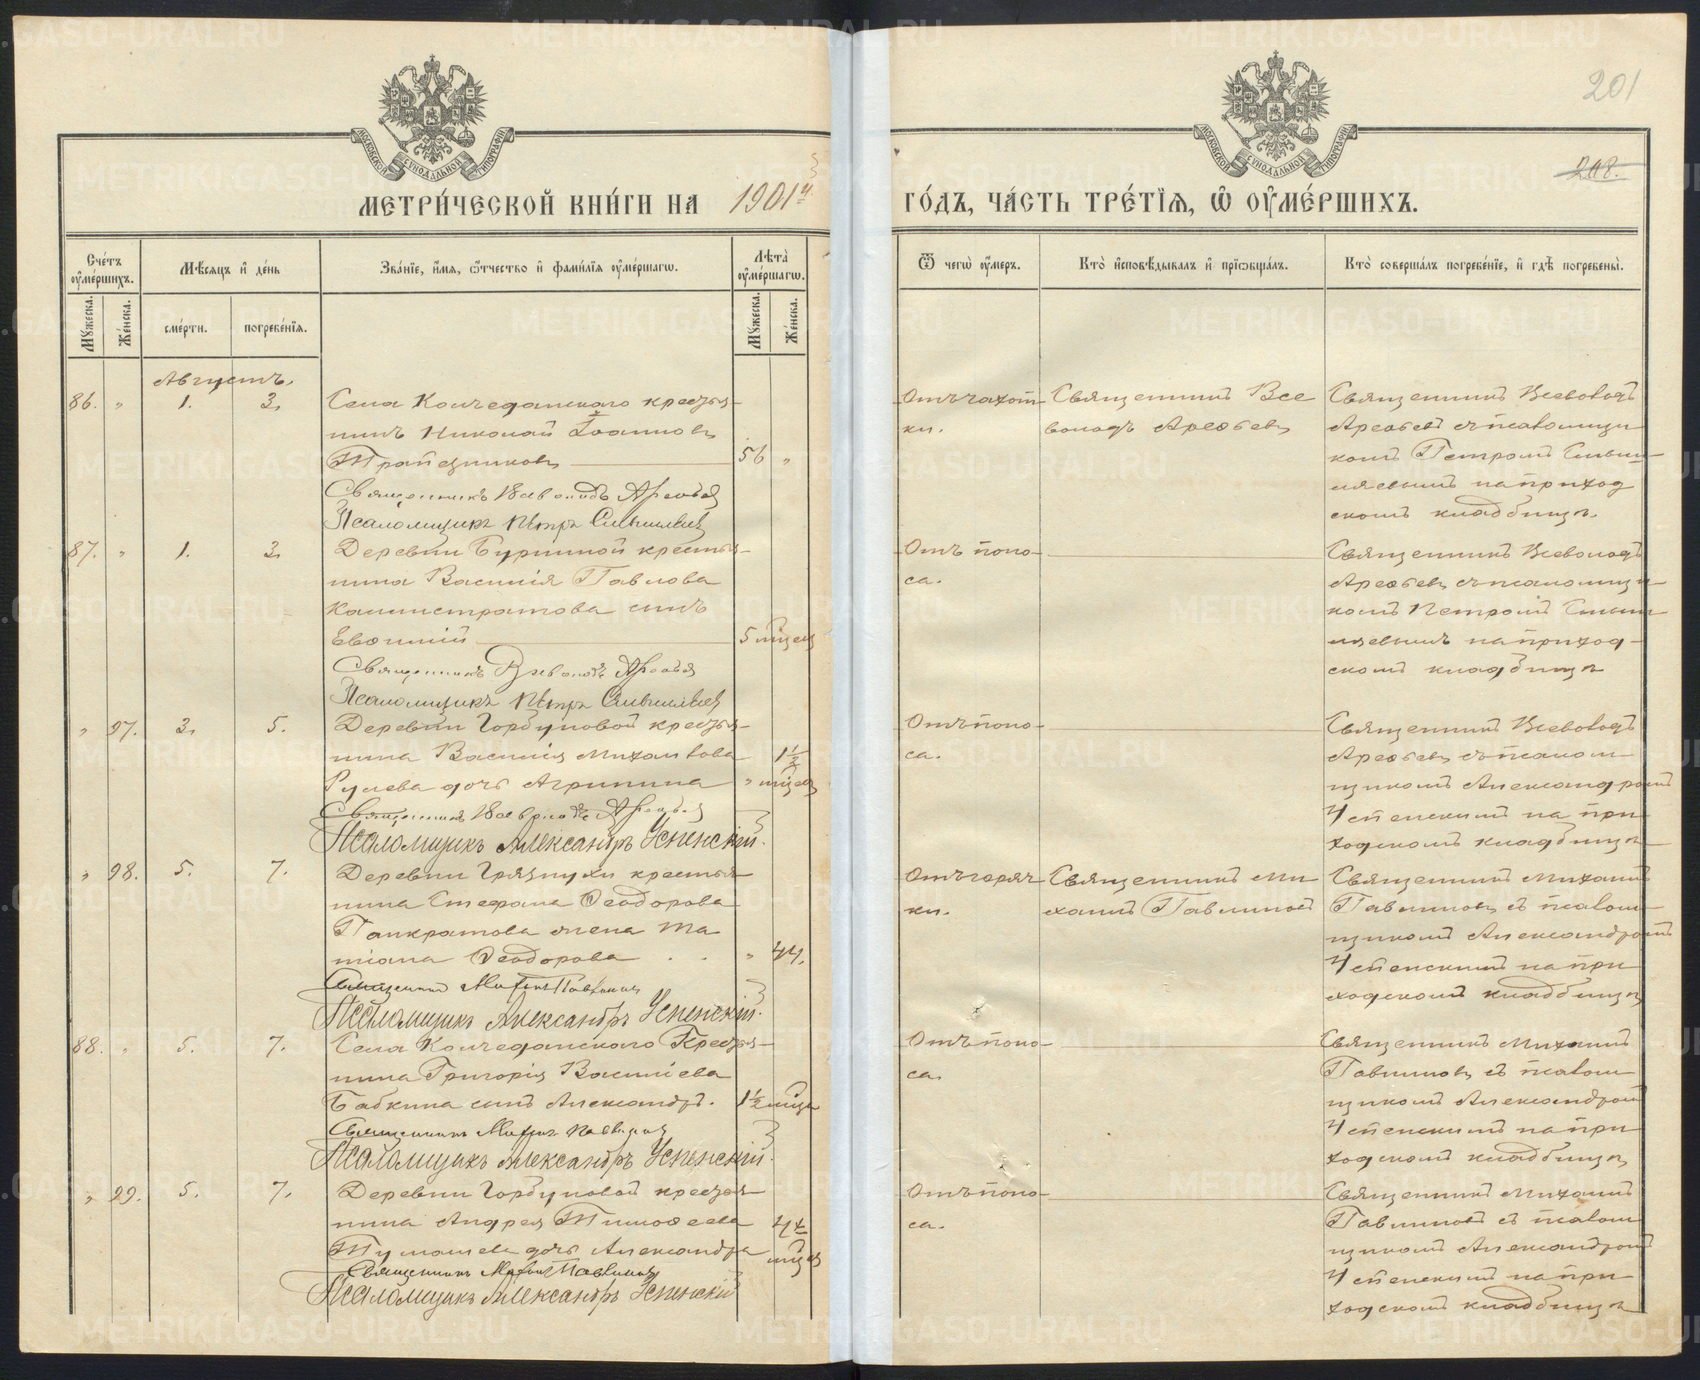 201
208.
МЕТРИ́ЧЕСКОЙ КНИ́ГИ НА 1901й
ГО́ДЪ, ЧА́СТЬ ТРЕ́ТЇѦ, Ѽ ОУ҆МЕ́РШИХЪ.
Сче́тъ оу҆ме́ршихъ.
Мꙋ́жеска.
Же́нска.
Мѣ́сѧцъ и҆ де́нь
сме́рти.
погребе́нїѧ.
Зва́нїе, и҆́мѧ, ѻ҆́тчество и҆ фами́лїѧ оу҆ме́ршагѡ.
Лѣ́та оу҆ме́ршагѡ.
Мꙋ́жеска.
Же́нска.
Ѿ чегѡ̀ оу҆́меръ.
Кто̀ и҆сповѣ́дывалъ и҆ прїѡбща́лъ.
Кто̀ соверша́лъ погребе́нїе, и҆ гдѣ̀ погребены̀.
Августъ.
86. „ 1. 3.
Села Колчеданского крестья-
нинъ Николай Іоанновъ
Трапезниковъ 56 „
Священникъ Всеволодъ Арефьев
Псаломщикъ Петръ Сильшляевъ
Отъ чахот-
ки.
Священникъ Все
володъ Арефьевъ
Священникъ Всеволодъ
Арефьевъ съ псаломщи
комъ Петромъ
на приход
скомъ кладбищѣ.
87. „ 1. 3.
Деревни Буриной крестья-
нина Василія Павлова
Калистратова сынъ
Евфимій 5 мѣсец
Священникъ Всеволодъ Арефьев
Псаломщикъ Петръ
Отъ поно-
са.
Священникъ Всеволодъ
Арефьевъ съ псаломщи-
комъ Петромъ
на приход-
скомъ кладбищѣ
„ 97. 3. 5.
Деревни Горбуновой крестья-
нина Василія Михаилова 1½
Рулева дочь Агрипина „ мѣсец
Священникъ Всеволодъ Арефьев
Псаломщикъ Александръ Успенскій.
Отъ поно-
са.
Священникъ Всеволодъ
Арефьевъ съ псалом-
щикомъ Александромъ
Успенскимъ на при-
ходскомъ кладбищѣ
„ 98. 5. 7.
Деревни Грязнухи крестья-
нина Стефана Ѳеодорова
Панкратова жена Та
тіана Ѳеодорова „ 44.
Священникъ Мих. Павлинов
Псаломщикъ Александръ Успенскій.
Отъ горяч
ки.
Священникъ Ми
хаилъ Павлиновъ
Священникъ Михаилъ
Павлиновъ съ псалом-
щикомъ Александромъ
Успенскимъ на при
ходскомъ кладбищѣ
88. „ 5. 7.
Села Колчеданского Крестья-
нина Григорія Василіева
Бабкина сынъ Александръ. 1½ мѣсец
Священникъ Мих. Павлинов
Псаломщикъ Александръ Успенскій.
Отъ поно-
са.
Священникъ Михаилъ
Павлиновъ съ псалом
щикомъ Александромъ
Успенскимъ на при
ходскомъ кладбищѣ
„ 99. 5. 7.
Деревни Горбуновой крестья-
нина Андрея Тимоѳеева
Тумашева дочь Александра мѣсец
Священникъ Мих. Павлинов
Псаломщикъ Александръ Успенскій
Отъ поно-
са.
Священникъ Михаилъ
Павлиновъ съ псалом
щикомъ Александромъ
Успенскимъ на при
ходскомъ кладбищѣ
METRIKI.GASO-URAL.RU